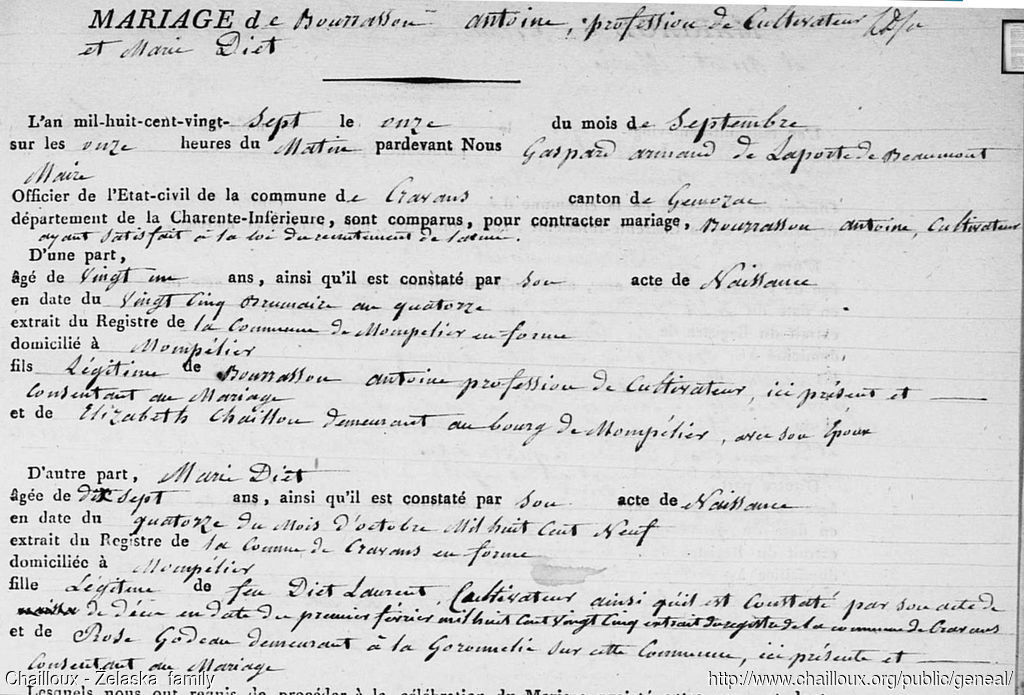 MARIAGE de Bourrasson antoine, profession de Cultivateur
et Marie Diet
L'an mil-huit-cent-vingt- Sept le onze du mois de Septembre
sur les onze heures du Matin pardevant Nous Gaspard armand de Laporte de Beaumont
Maire
Officier de l'Etat-civil de la commune de Cravans canton de Gemozac
département de la Charente-Inférieure, sont comparus, pour contracter mariage, Bourrasson antoine, Cultivateur
ayant satisfait à la loi du recrutement de l'armé.
D'une part,
âgé de Vingt une ans, ainsi qu'il est constaté par son acte de Naissance
en date du Vingt Cinq Brumaire an quatorze
extrait du Registre de la Commune de Mompelier en forme
domicilié à Mompélier
fils Légitime de Bourrasson antoine profession de Cultivateur, ici présent et
Consentant au Mariage
et de Elizabeth Chaillou demeurant au bourg de Mompélier, avec son Époux
D'autre part, Marie Diet
âgée de dix Sept ans, ainsi qu'il est constaté par son acte de Naissance
en date du quatorze du Mois d'octobre Mil huit Cent Neuf
extrait du Registre de la Comune de Cravans en forme
domiciliée à Mompélier
fille Légitime de feu Diet Laurent, Cultivateur ainsi qu'il est Constaté par son acte de
de décè en date du premier février mil huit Cent Vingt Cinq extrait du registre de la commune de Cravans
et de Rose Godeau demeurant à la sur cette Commune, ici présente et
Consentant au Mariage
Lesquels nous ont requis de procéder à la célébration du
Chailloux - Żelaska family
http://www.chailloux.org/public/geneal/